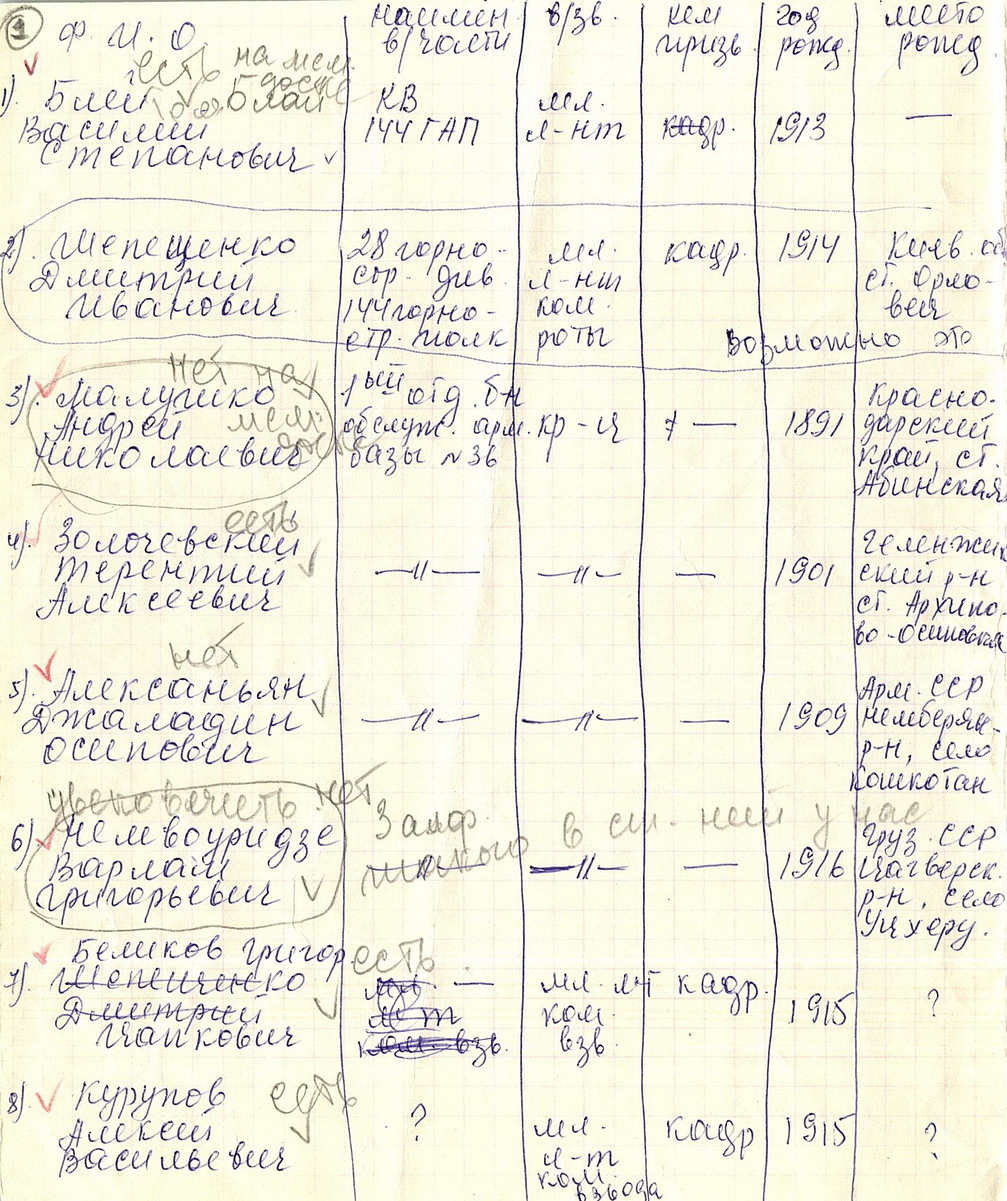 1
Ф. И. О. наимен в/части в/зв. кем призв. год рожд. место рожд.
есть на мем. доске
1). Блай КВ мл.
Василий 144 ГАП л-нт кадр. 1913 —
Степанович
2). Шепещенко 28 горно- мл. кадр. 1914 Киев. об
Дмитрий стр. див. л-нт ст. Орло-
Иванович 144 горно- ком. вец
стр. полк роты возможно это
нет на мем. доске
3) Малушко 1ый отд. б-н Красно-
Андрей обслуж. арм. кр-ц — 1891 дарский
Николаевич базы №36 край, ст.
Абинская
есть
4). Золочевский Геленжик
Терентий —"— —"— — 1901 ский р-н
Алексеевич ст. Архипо-
во-Осиповка
нет
5). Алексаньян Арм. ССР
Джаладин —"— —"— — 1909
Осипович р-н, село
Кошкотан
увековечить нет
6) Немвоуридзе в сп. ней у нас Груз. ССР
Варлам —"— — 1916 Цагверск.
Григорьевич р-н, село
Учхеру.
Беликов Григор. есть.
7). Шепиченко мл — мл. л-т кадр. 1915 ?
Дмитрий л-т ком.
Чапкович ком. взв. взв.
есть
8) Курупов ? мл. кадр 1915 ?
Алексей л-т
Васильевич ком.
взвода